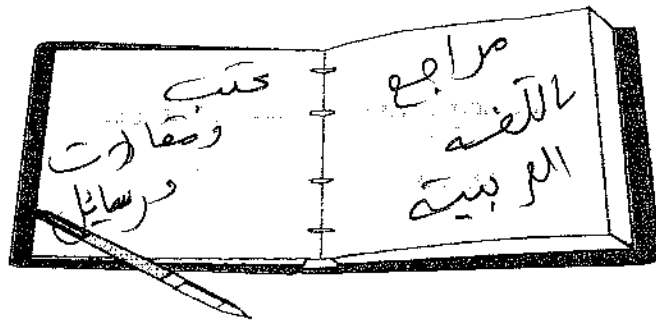 مراجع
باللغة
العربية
كتب
ومقالات
ورسائل